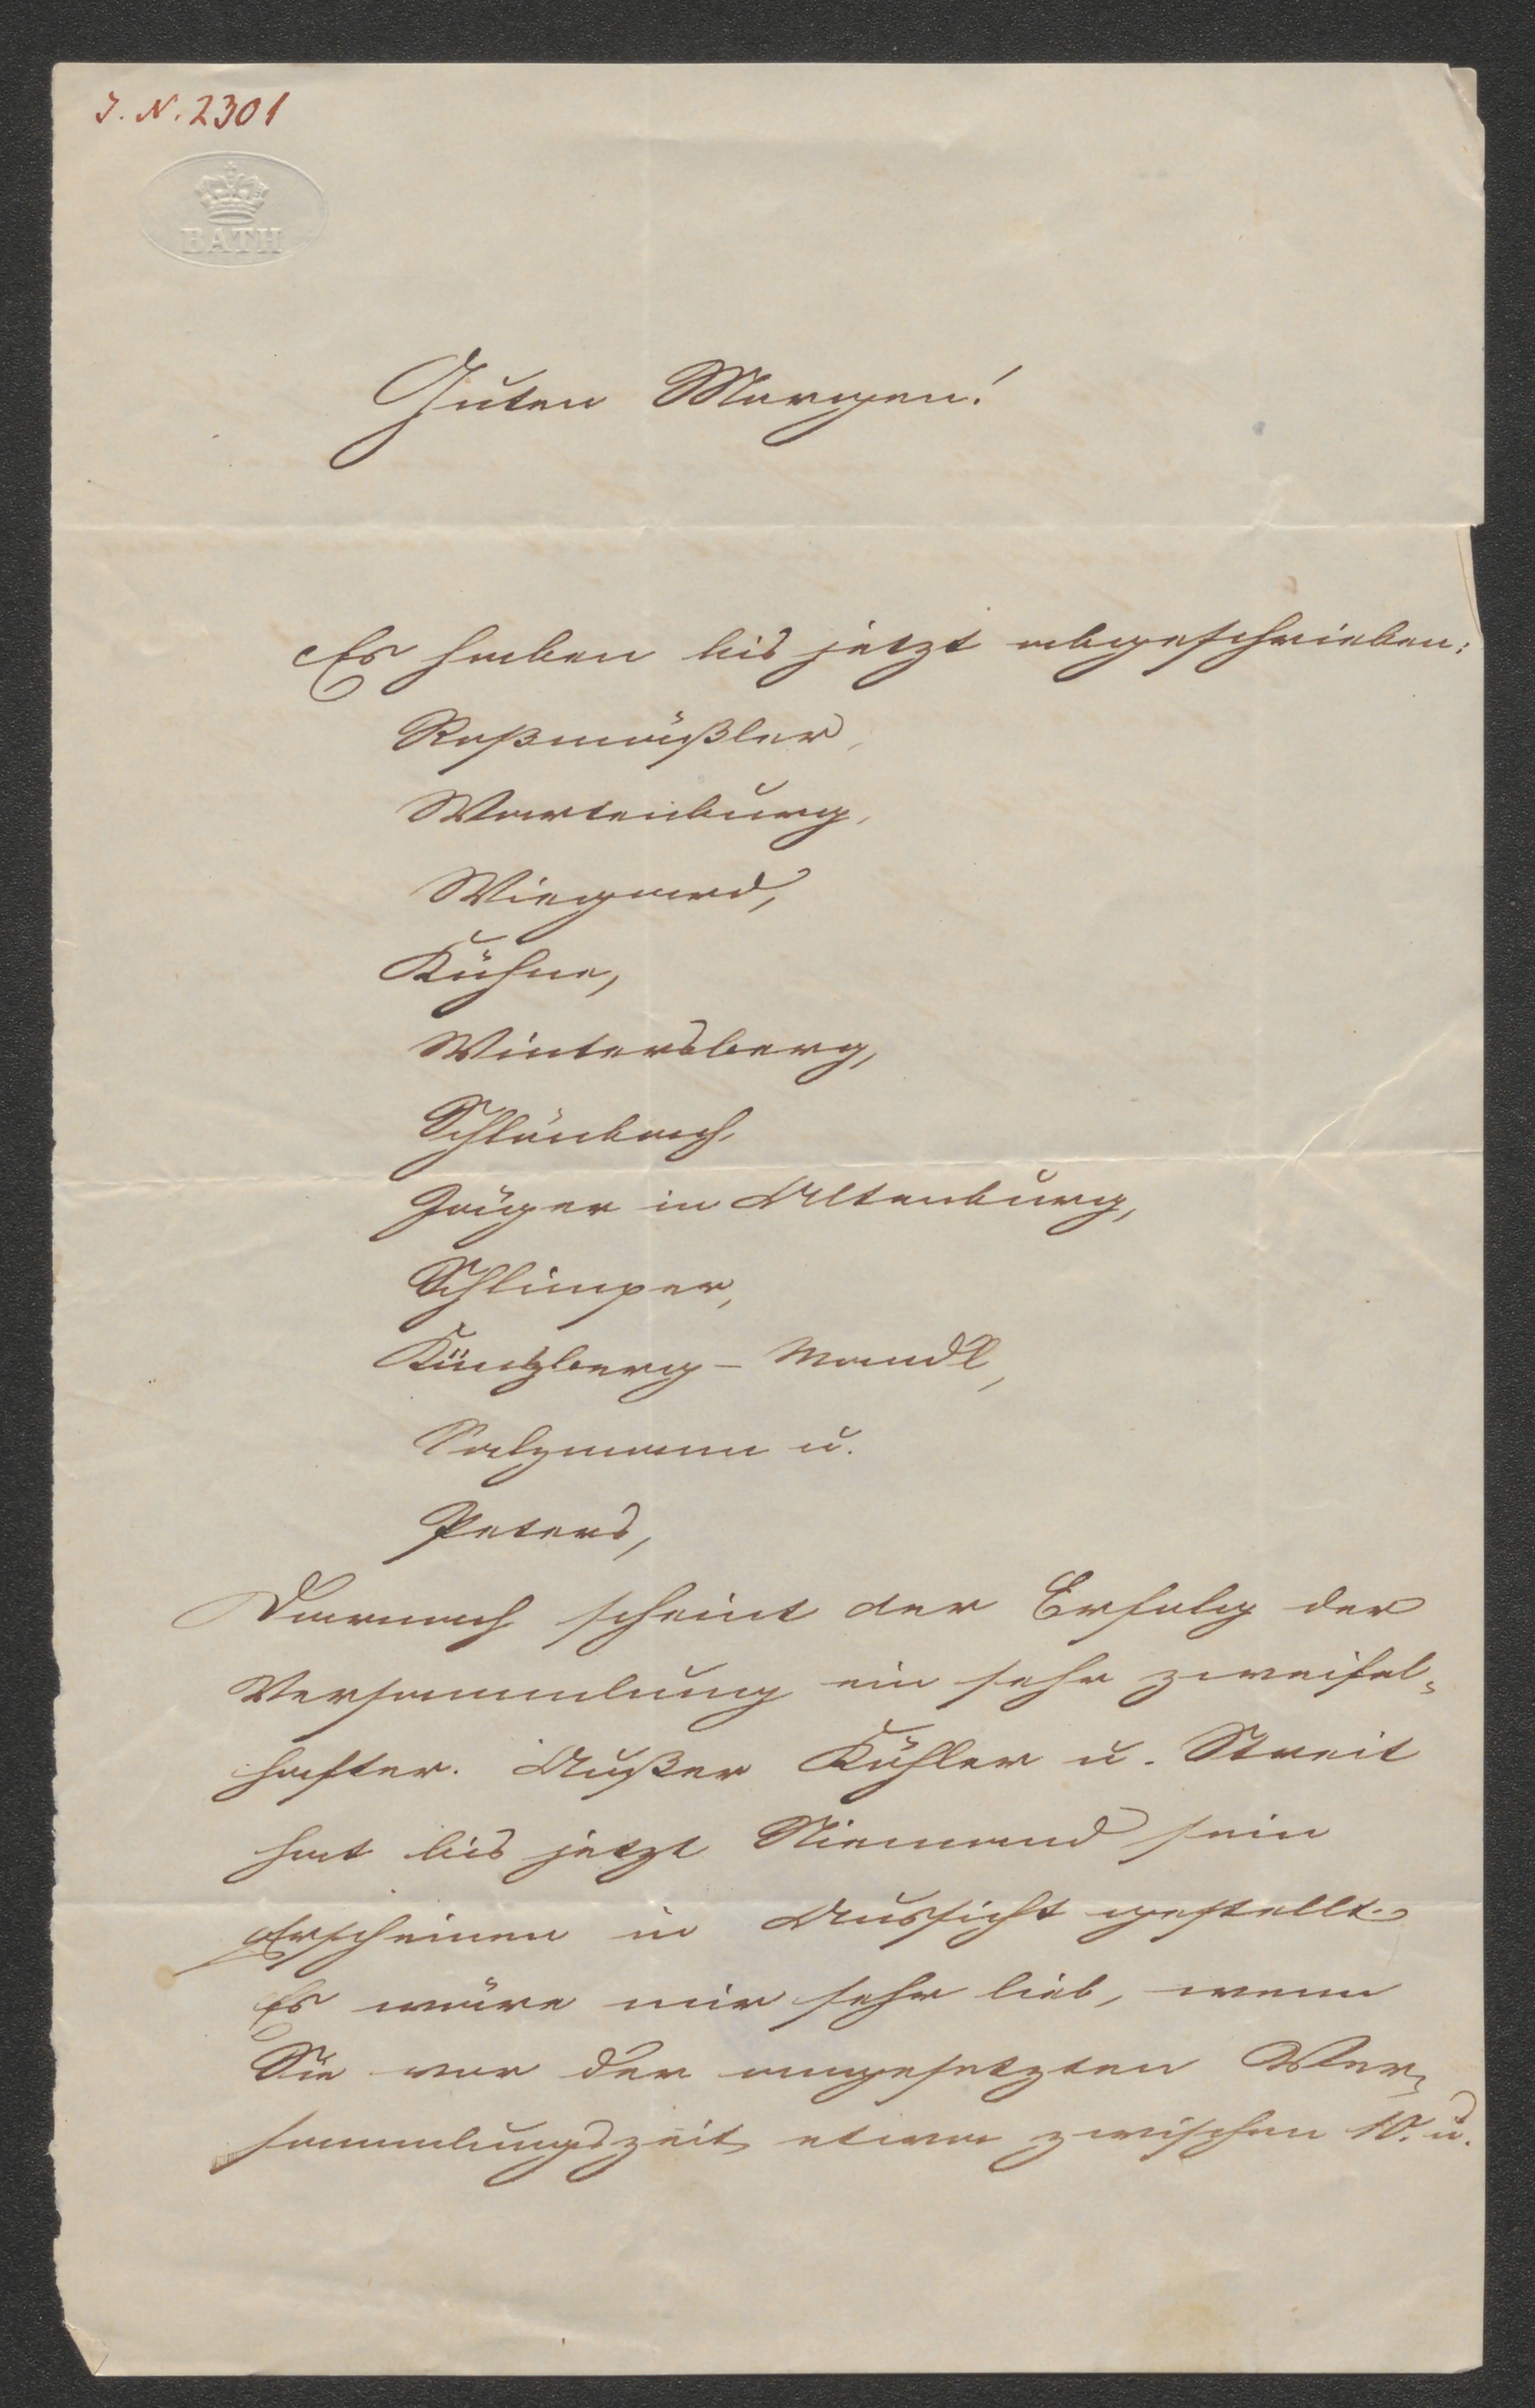 J. N. 2301
BATH
Guten Morgen!
Es haben bis jetzt abgeschrieben:
Roßmäßler,
Wartenburg,
Wiegand,
Kühne,
Wintersberg,
Schlönbach,
Jäger in Altenburg,
Schlimper,
Küntzberg - Mandl,
Salzmann u.
Peters,
Darnach scheint der Erfolg der
Versammlung ein sehr zweifel-
hafter. Außer Köhler u. Streit
hat bis jetzt Niemand sein
Erscheinen in Aussicht gestellt.
Es wäre mir sehr lieb, wenn
Sie vor der angesetzten Ver-
sammlungszeit etwa zwischen 10. u.